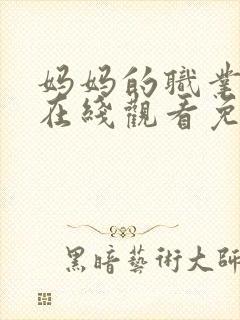 妈妈的職業
在綫觀看免
黑暗藝術大師